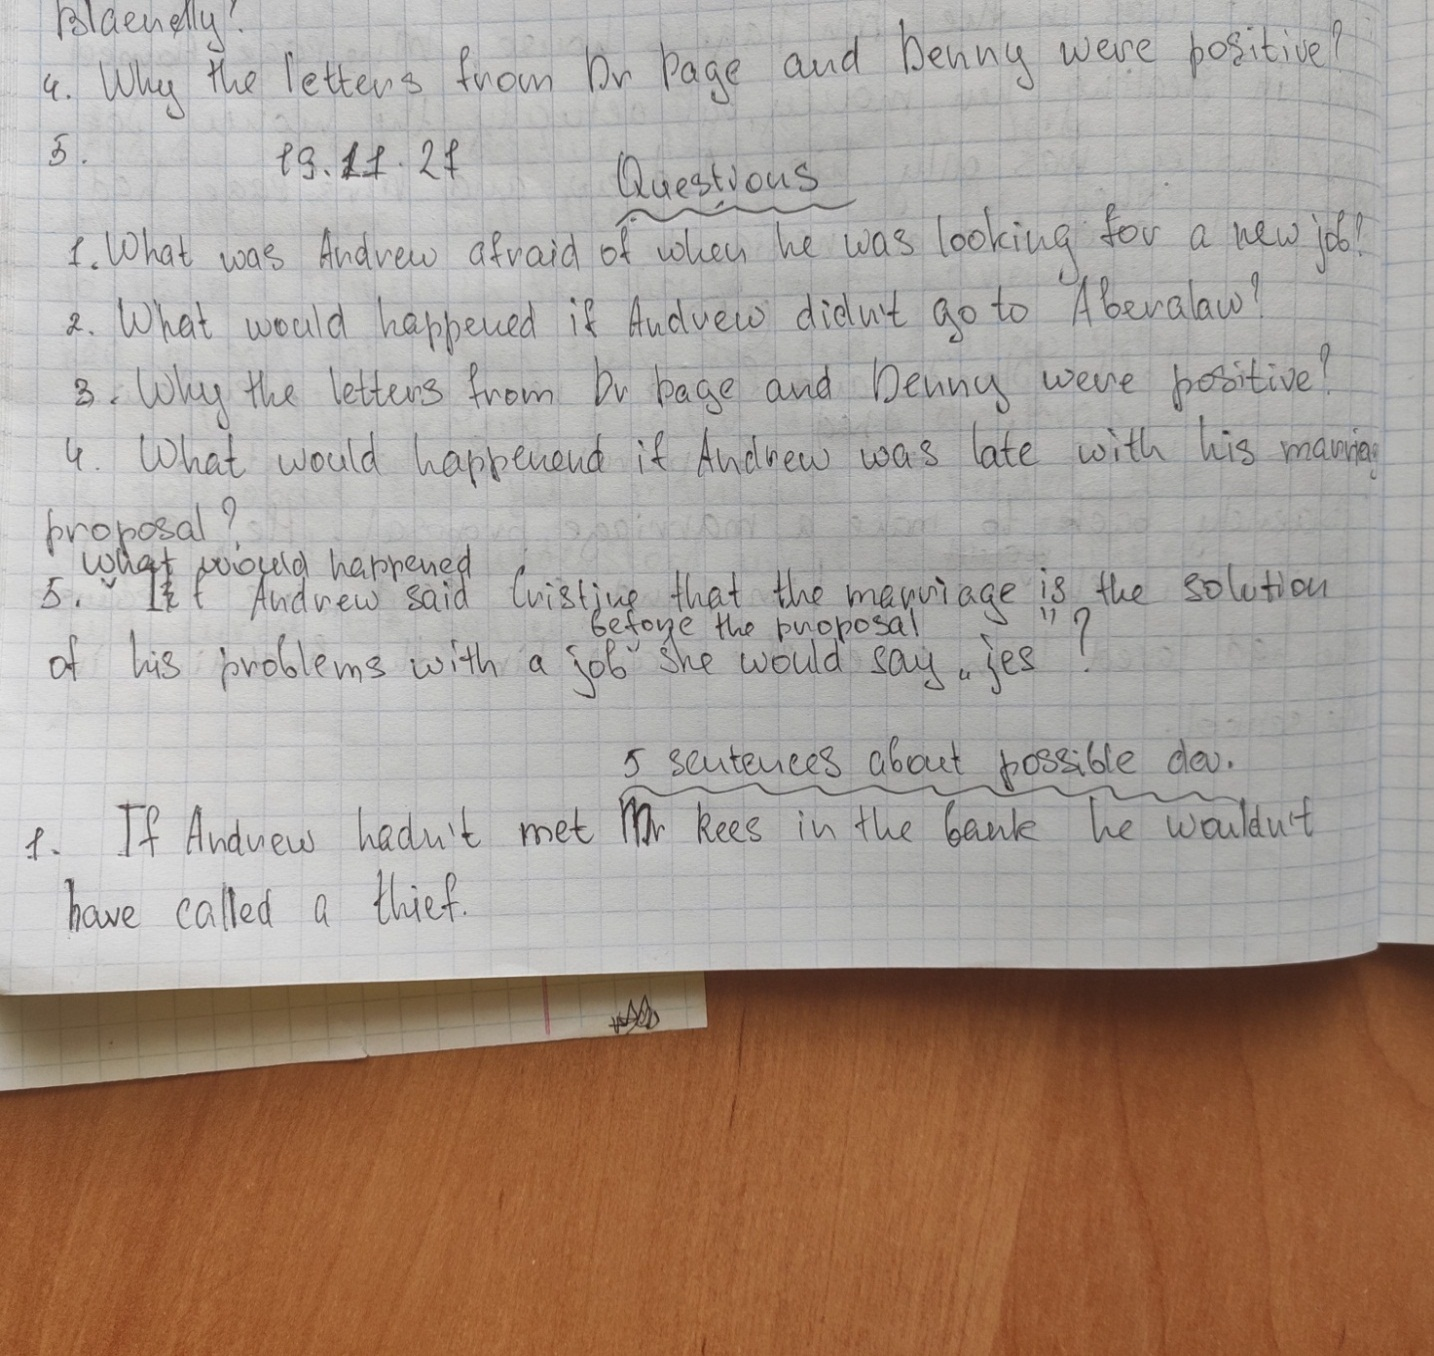 Blaenelly?
4. Why the letters from Dr Page and Denny were positive?
5. 19.11.21
Questions
1. What was Andrew afraid of when he was looking for a new job?
2. What would happened if Andrew didn't go to Aberalaw?
3. Why the letters from Dr Page and Denny were positive?
4. What would happenend if Andrew was late with his marriag
proposal?
What would happened
5. If Andrew said Cristine that the marriage is the solution
before the proposal
of his problems with a job she would say „jes"?
5 sentences about possible dev.
1. If Andrew hadn't met Mr Rees in the bank he wouldn't
have called a thief.